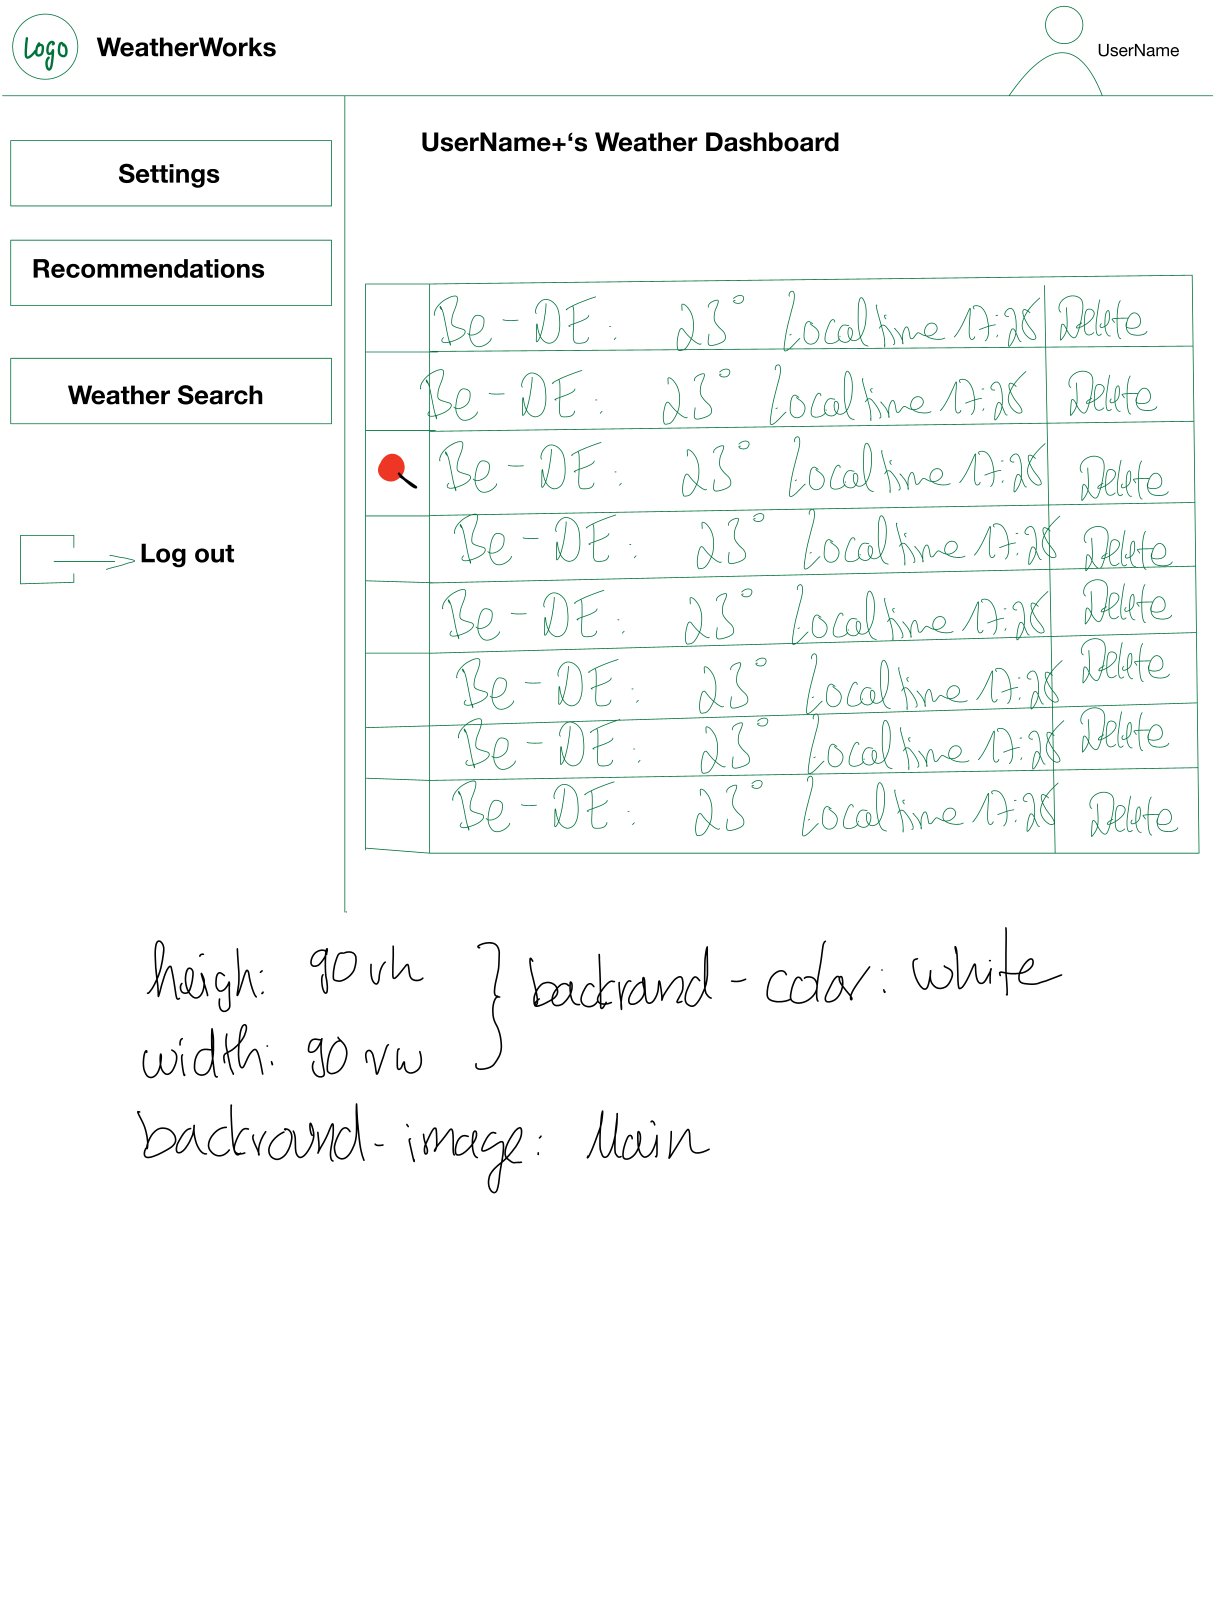 Logo WeatherWorks UserName
UserName+‘s Weather Dashboard
Settings
Recommendations
Weather Search
Log out
Be-DE: 23° Local time 17:28 Delete
Be-DE: 23° Local time 17:28 Delete
Be-DE: 23° Local time 17:28 Delete
Be-DE: 23° Local time 17:28 Delete
Be-DE: 23° Local time 17:28 Delete
Be-DE: 23° Local time 17:28 Delete
Be-DE: 23° Local time 17:28 Delete
Be-DE: 23° Local time 17:28 Delete
heigh: 90 vh } backrand-color: white
width: 90 vw
backround-image: Main